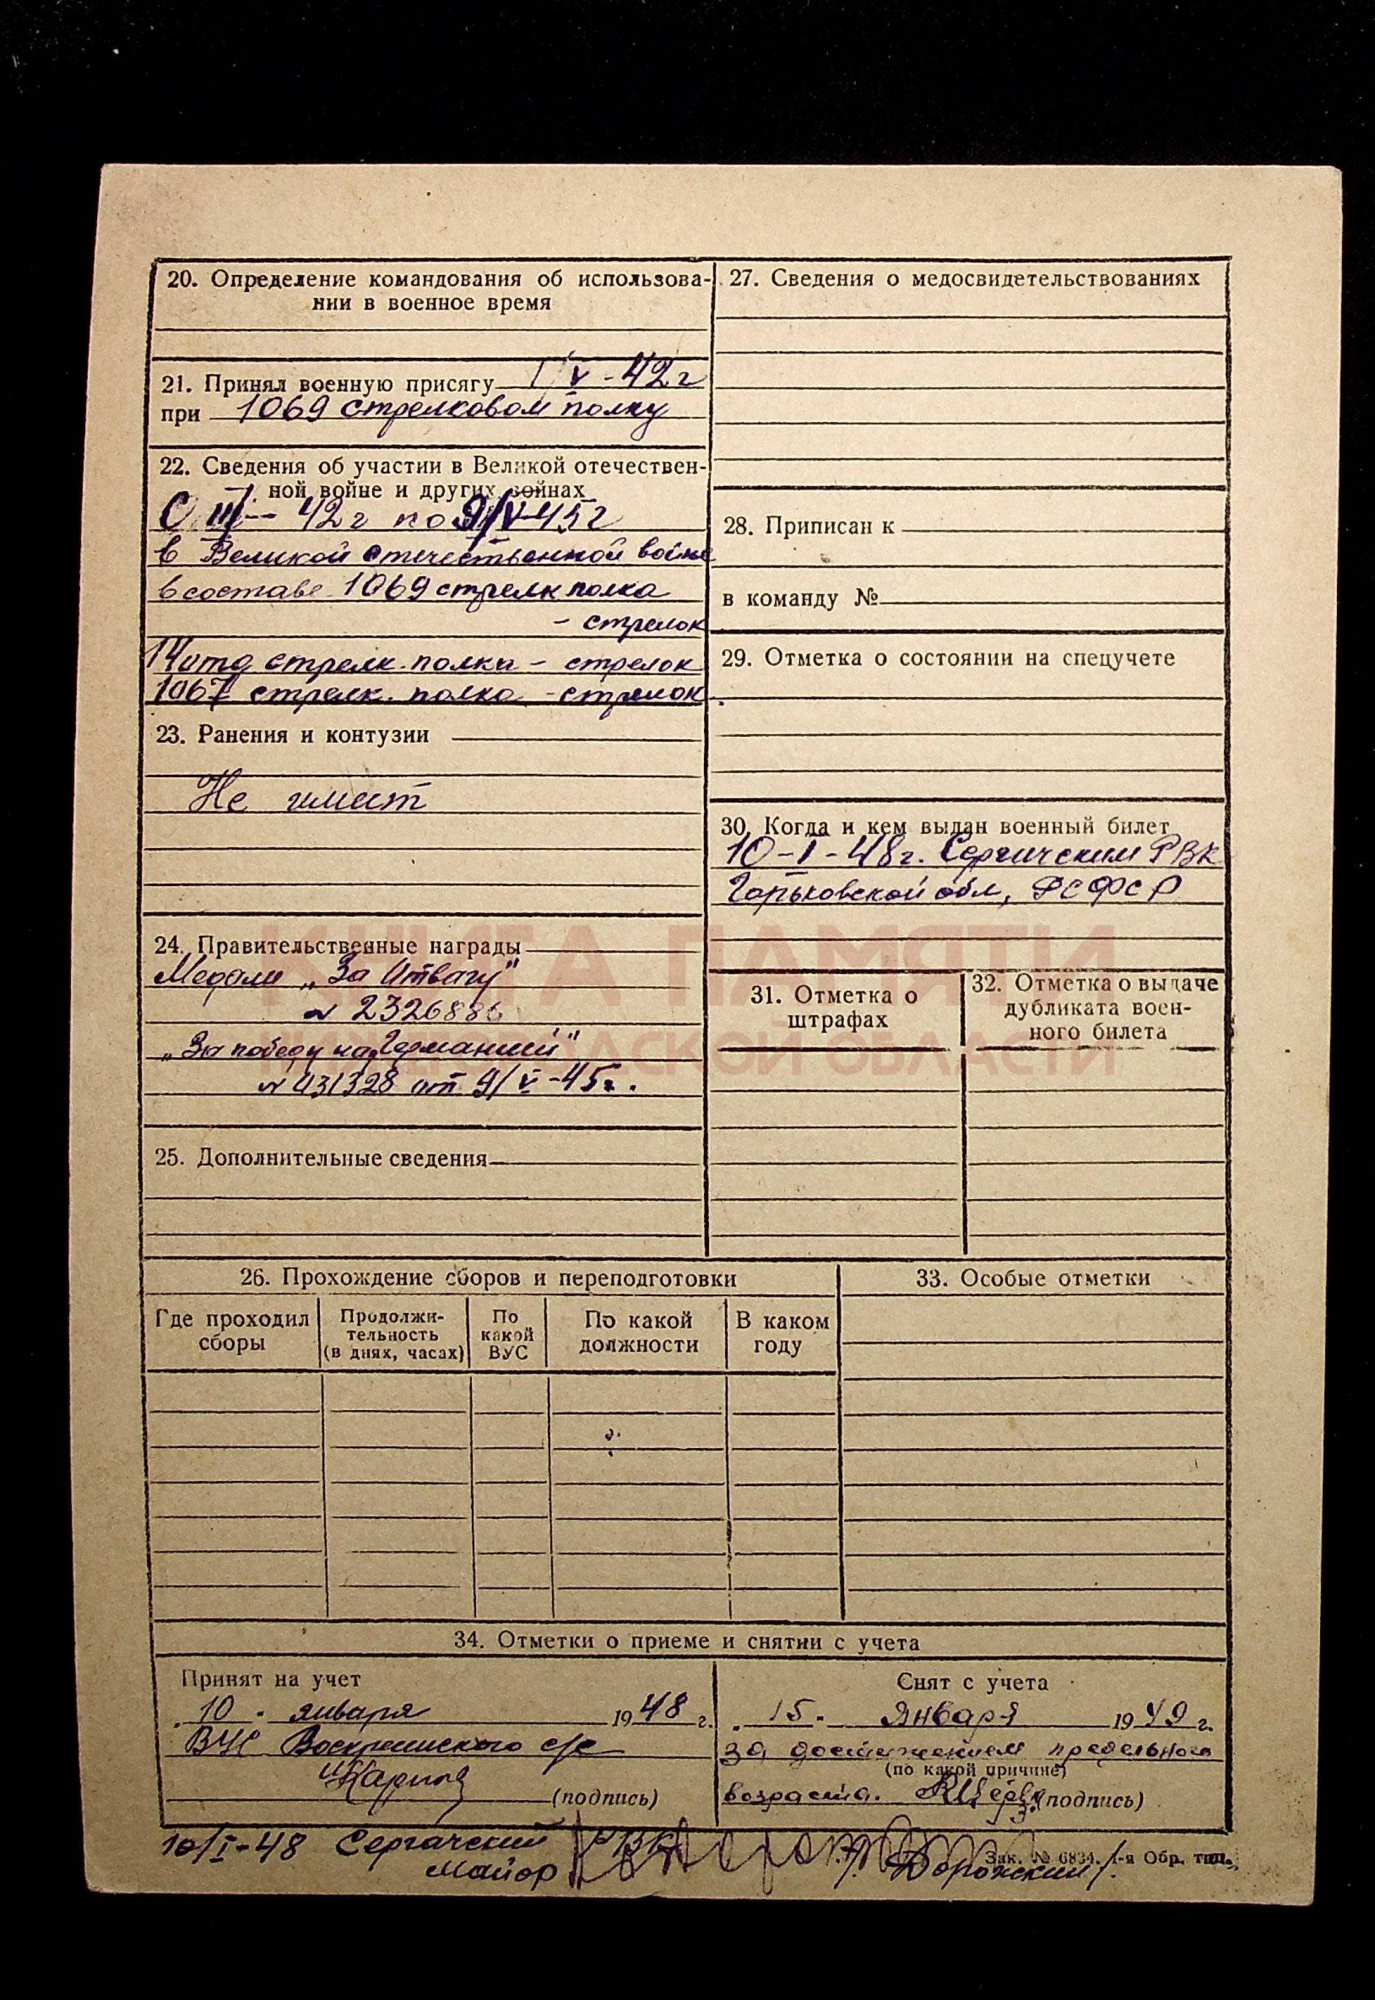 20. Определение командования об использова-
нии в военное время
21. Принял военную присягу V - 42 г
при 1069 стрелковом полку
22. Сведения об участии в Великой отечествен-
ной войне и других войнах
С III - 42 г по 9/V-45 г
в Великой отечественной войне
в составе 1069 стрелк полка
- стрелок
стрелк. полка - стрелок
1067 стрелк. полка - стрелок
23. Ранения и контузии
Не имеет
24. Правительственные награды
Медали „За Отвагу"
N 2326886
„За победу над Германией"
N 431328 от 9/V-45г.
25. Дополнительные сведения
27. Сведения о медосвидетельствованиях
28. Приписан к
в команду №
29. Отметка о состоянии на спецучете
30. Когда и кем выдан военный билет
10-I-48г. Сергачским РВК
Горьковской обл, РСФСР
31. Отметка о
штрафах
32. Отметка о выдаче
дубликата воен-
ного билета
КНИГА ПАМЯТИ
ОБЛАСТИ
26. Прохождение сборов и переподготовки
Где проходил
сборы
Продолжи-
тельность
(в днях, часах)
По
какой
ВУС
По какой
должности
В каком
году
33. Особые отметки
34. Отметки о приеме и снятии с учета
Принят на учет
„10" января 1948 г.
ВУС Воскресенского с/с
(подпись)
Снят с учета
„15" Января 1949 г.
за достижением предельного
(по какой причине)
возраста. (подпись)
10/I-48 Сергачский РВК
Майор /Дорожский/.
Зак. № 6834. 1-я Обр. тип.